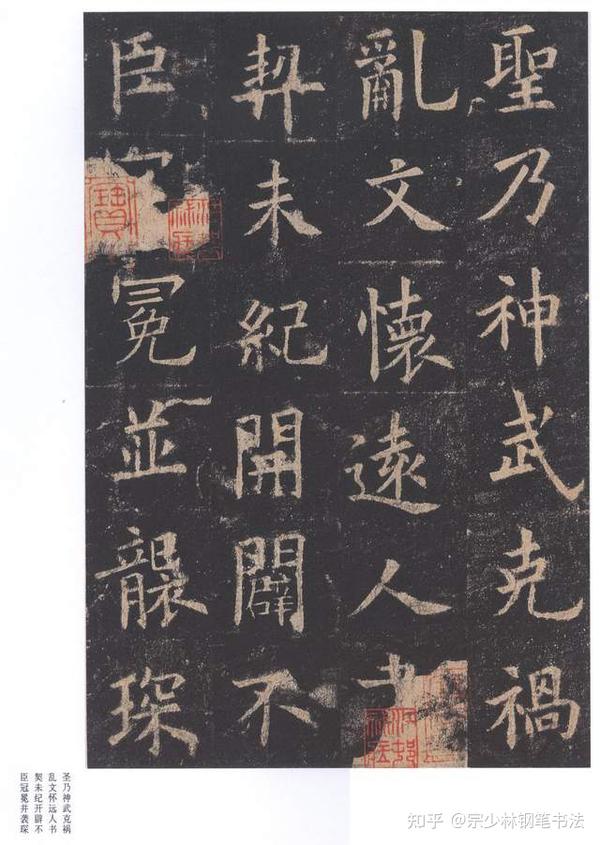 聖乃神武克禍
亂文懷遠人
契未紀開闢不
臣冕並襲琛
圣乃神武克祸
乱文怀远人书
契未纪开辟不
臣冠冕并袭琛
知乎 @宗少林钢笔书法